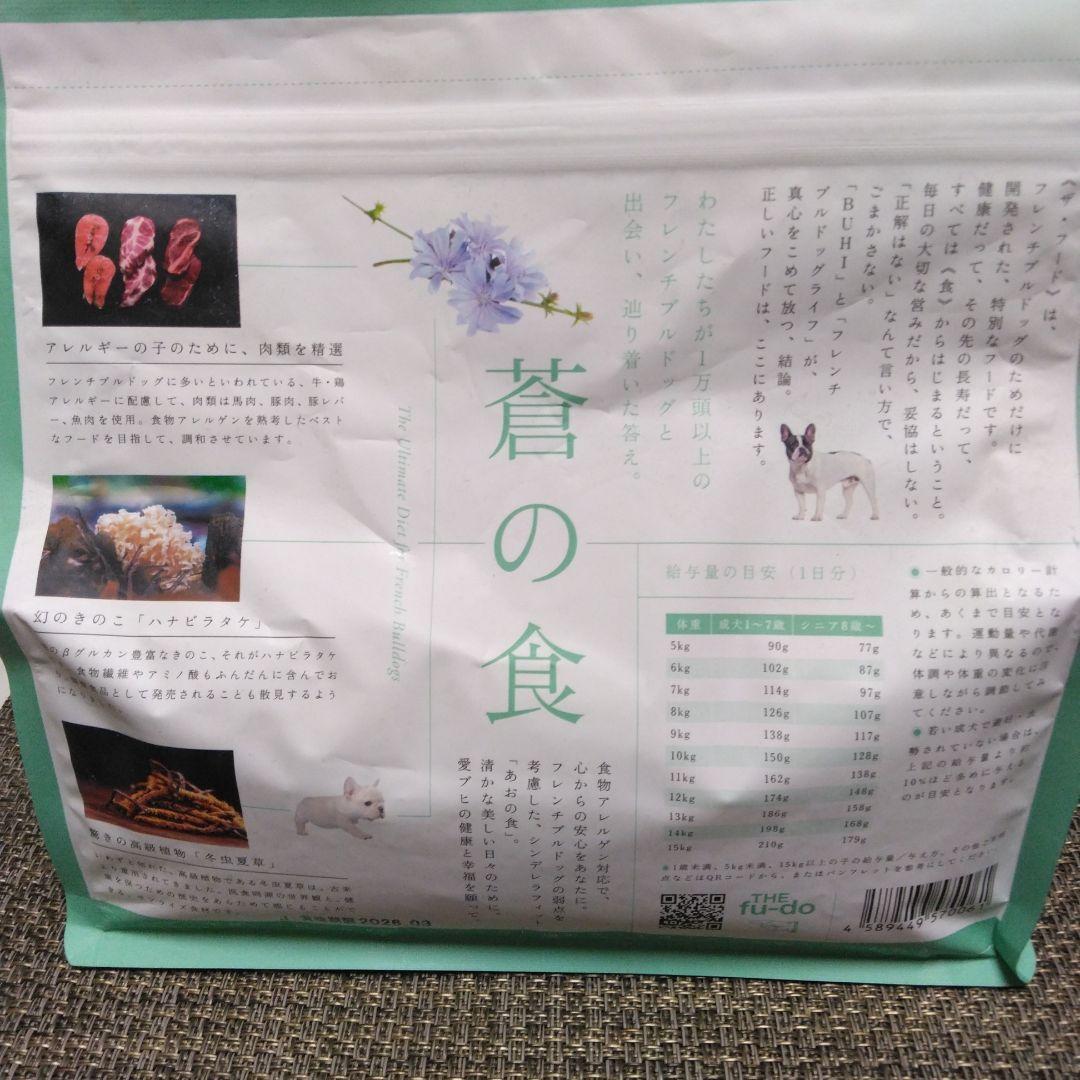 《ザ・フード》は、
フレンチブルドッグのためだけに
開発された、特別なフードです。
健康だって、その先の長寿だって、
すべては《食》からはじまるということ。
毎日の大切な営みだから、妥協はしない。
「正解はない」なんて言い方で、
ごまかさない。
「BUHI」と「フレンチ
ブルドッグライフ」が、
真心をこめて放つ、結論。
正しいフードは、ここにあります。
わたしたちが1万頭以上の
フレンチブルドッグと
出会い、辿り着いた答え。
蒼の食
The Ultimate Diet for French Bulldogs
アレルギーの子のために、肉類を精選
フレンチブルドッグに多いといわれている、牛・鶏
アレルギーに配慮して、肉類は馬肉、豚肉、豚レバ
ー、魚肉を使用。食物アレルゲンを熟考したベスト
なフードを目指して、調和させています。
幻のきのこ「ハナビラタケ」
βグルカン豊富なきのこ、それがハナビラタケ
食物繊維やアミノ酸もふんだんに含んでお
品として発売されることも散見するよう
驚きの高級植物「冬虫夏草」
高級植物である冬虫夏草は、古来
重用されてきました。医食同源の世界観と、健
食物アレルゲン対応で、
心からの安心をあなたに。
フレンチブルドッグの弱点を
考慮した、シンデレラフィット
「あおの食」。
清かな美しい日々のために、
愛ブヒの健康と幸福を願って。
給与量の目安(1日分)
体重 成犬1〜7歳 シニア8歳〜
5kg 90g 77g
6kg 102g 87g
7kg 114g 97g
8kg 126g 107g
9kg 138g 117g
10kg 150g 128g
11kg 162g 138g
12kg 174g 148g
13kg 186g 158g
14kg 198g 168g
15kg 210g 179g
●一般的なカロリー計
算からの算出となるた
め、あくまで目安とな
ります。運動量や代謝
などにより異なるので、
体調や体重の変化に注
意しながら調節してみ
てください。
●若い成犬で避妊・去
勢されていない場合は、
上記の給与量より約
10%ほど多めに与える
のが目安となります。
●1歳未満、5kg未満、15kg以上の子の給与量/与え方、その他ご不明
点などはQRコードから、またはパンフレットを参考にしてください。
賞味期限2026.03
THE
fu-do
4 589449 57006